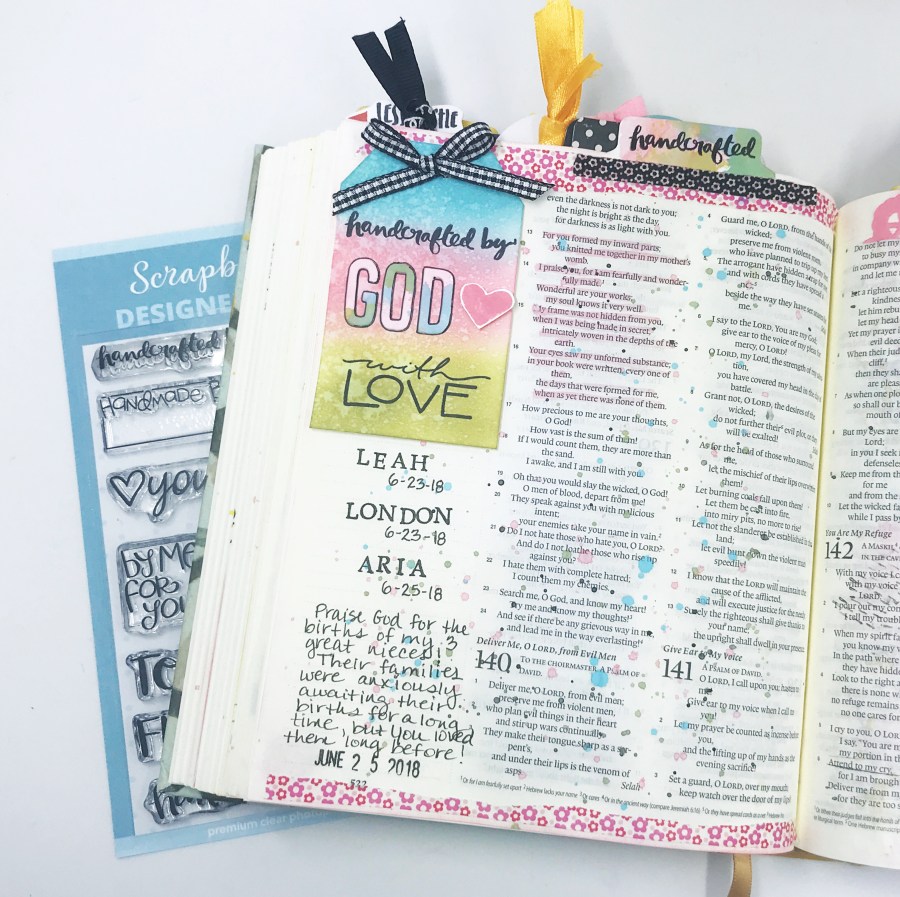 LES
SHE
handcrafted
handcrafted by
GOD
with
LOVE
LEAH
6-23-18
LONDON
6-23-18
ARIA
6-25-18
Praise God for the
births of my 3
great nieces!
Their families
were anxiously
awaiting their
births for a long
time, but you loved
them long before!
JUNE 25 2018
Scrapb
DESIGNE
handcrafted
HANDMADE B
you
by ME
FOR
YOU
TO
premium clear photo
even the darkness is not dark to you;
the night is bright as the day,
for darkness is as light with you.
13 For you formed my inward parts;
you knitted me together in my mother's
womb.
14 I praise you, for I am fearfully and wonder-
fully made.
Wonderful are your works;
my soul knows it very well.
15 My frame was not hidden from you,
when I was being made in secret,
intricately woven in the depths of the
earth.
16 Your eyes saw my unformed substance;
in your book were written, every one of
them,
the days that were formed for me,
when as yet there was none of them.
17 How precious to me are your thoughts,
O God!
How vast is the sum of them!
18 If I would count them, they are more than
the sand.
I awake, and I am still with you.
19 Oh that you would slay the wicked, O God!
O men of blood, depart from me!
20 They speak against you with malicious
intent;
your enemies take your name in vain.
21 Do I not hate those who hate you, O LORD?
And do I not loathe those who rise up
against you?
22 I hate them with complete hatred;
I count them my enemies.
23 Search me, O God, and know my heart!
Try me and know my thoughts!
24 And see if there be any grievous way in me,
and lead me in the way everlasting!
Deliver Me, O LORD, from Evil Men
140 TO THE CHOIRMASTER. A PSALM OF
DAVID.
1 Deliver me, O LORD, from evil men;
preserve me from violent men,
2 who plan evil things in their heart
and stir up wars continually.
3 They make their tongue sharp as a ser-
pent's,
and under their lips is the venom of
asps. Selah
4 Guard me, O LORD, from the hands of the
wicked;
preserve me from violent men,
who have planned to trip up my feet.
5 The arrogant have hidden a trap for me,
and with cords they have spread a
beside the way they have set
me.
6 I say to the LORD, You are my God;
give ear to the voice of my pleas for
mercy, O LORD!
7 O LORD, my Lord, the strength of my salva-
tion,
you have covered my head in the day of
battle.
8 Grant not, O LORD, the desires of the
wicked;
do not further their evil plot, or they
will be exalted!
9 As for the head of those who surround
me,
let the mischief of their lips overwhelm
them!
10 Let burning coals fall upon them!
Let them be cast into fire,
into miry pits, no more to rise!
11 Let not the slanderer be established in the
land;
let evil hunt down the violent man
speedily!
12 I know that the LORD will maintain the
cause of the afflicted,
and will execute justice for the needy.
13 Surely the righteous shall give thanks to
your name;
the upright shall dwell in your presence.
Give Ear to My Voice
141 A PSALM OF DAVID.
1 O LORD, I call upon you; hasten to
me!
Give ear to my voice when I call to
you!
2 Let my prayer be counted as incense before
you,
and the lifting up of my hands as the
evening sacrifice!
3 Set a guard, O LORD, over my mouth;
keep watch over the door of my lips!
Do not let my
to busy my
in company w
and let me
let a righteous
kindness
let him rebu
let my head
Yet my prayer i
evil deed
When their jud
cliff,
then they sh
are pleas
As when one plo
so shall our b
mouth of
But my eyes are
Lord;
in you I seek
defenseless
Keep me from th
for me
and from the s
Let the wicked fa
while I pass by
You Are My Refuge
142 A MASKIL
IN THE CAVE
With my voice I c
with my voice
LORD.
I pour out my com
I tell my trouble
When my spirit fa
you know my w
In the path where
they have hidde
Look to the right a
there is none w
no refuge remains
no one cares for
I cry to you, O LORD
I say, "You are m
my portion in th
Attend to my cry,
for I am brough
Deliver me from m
for they are too s